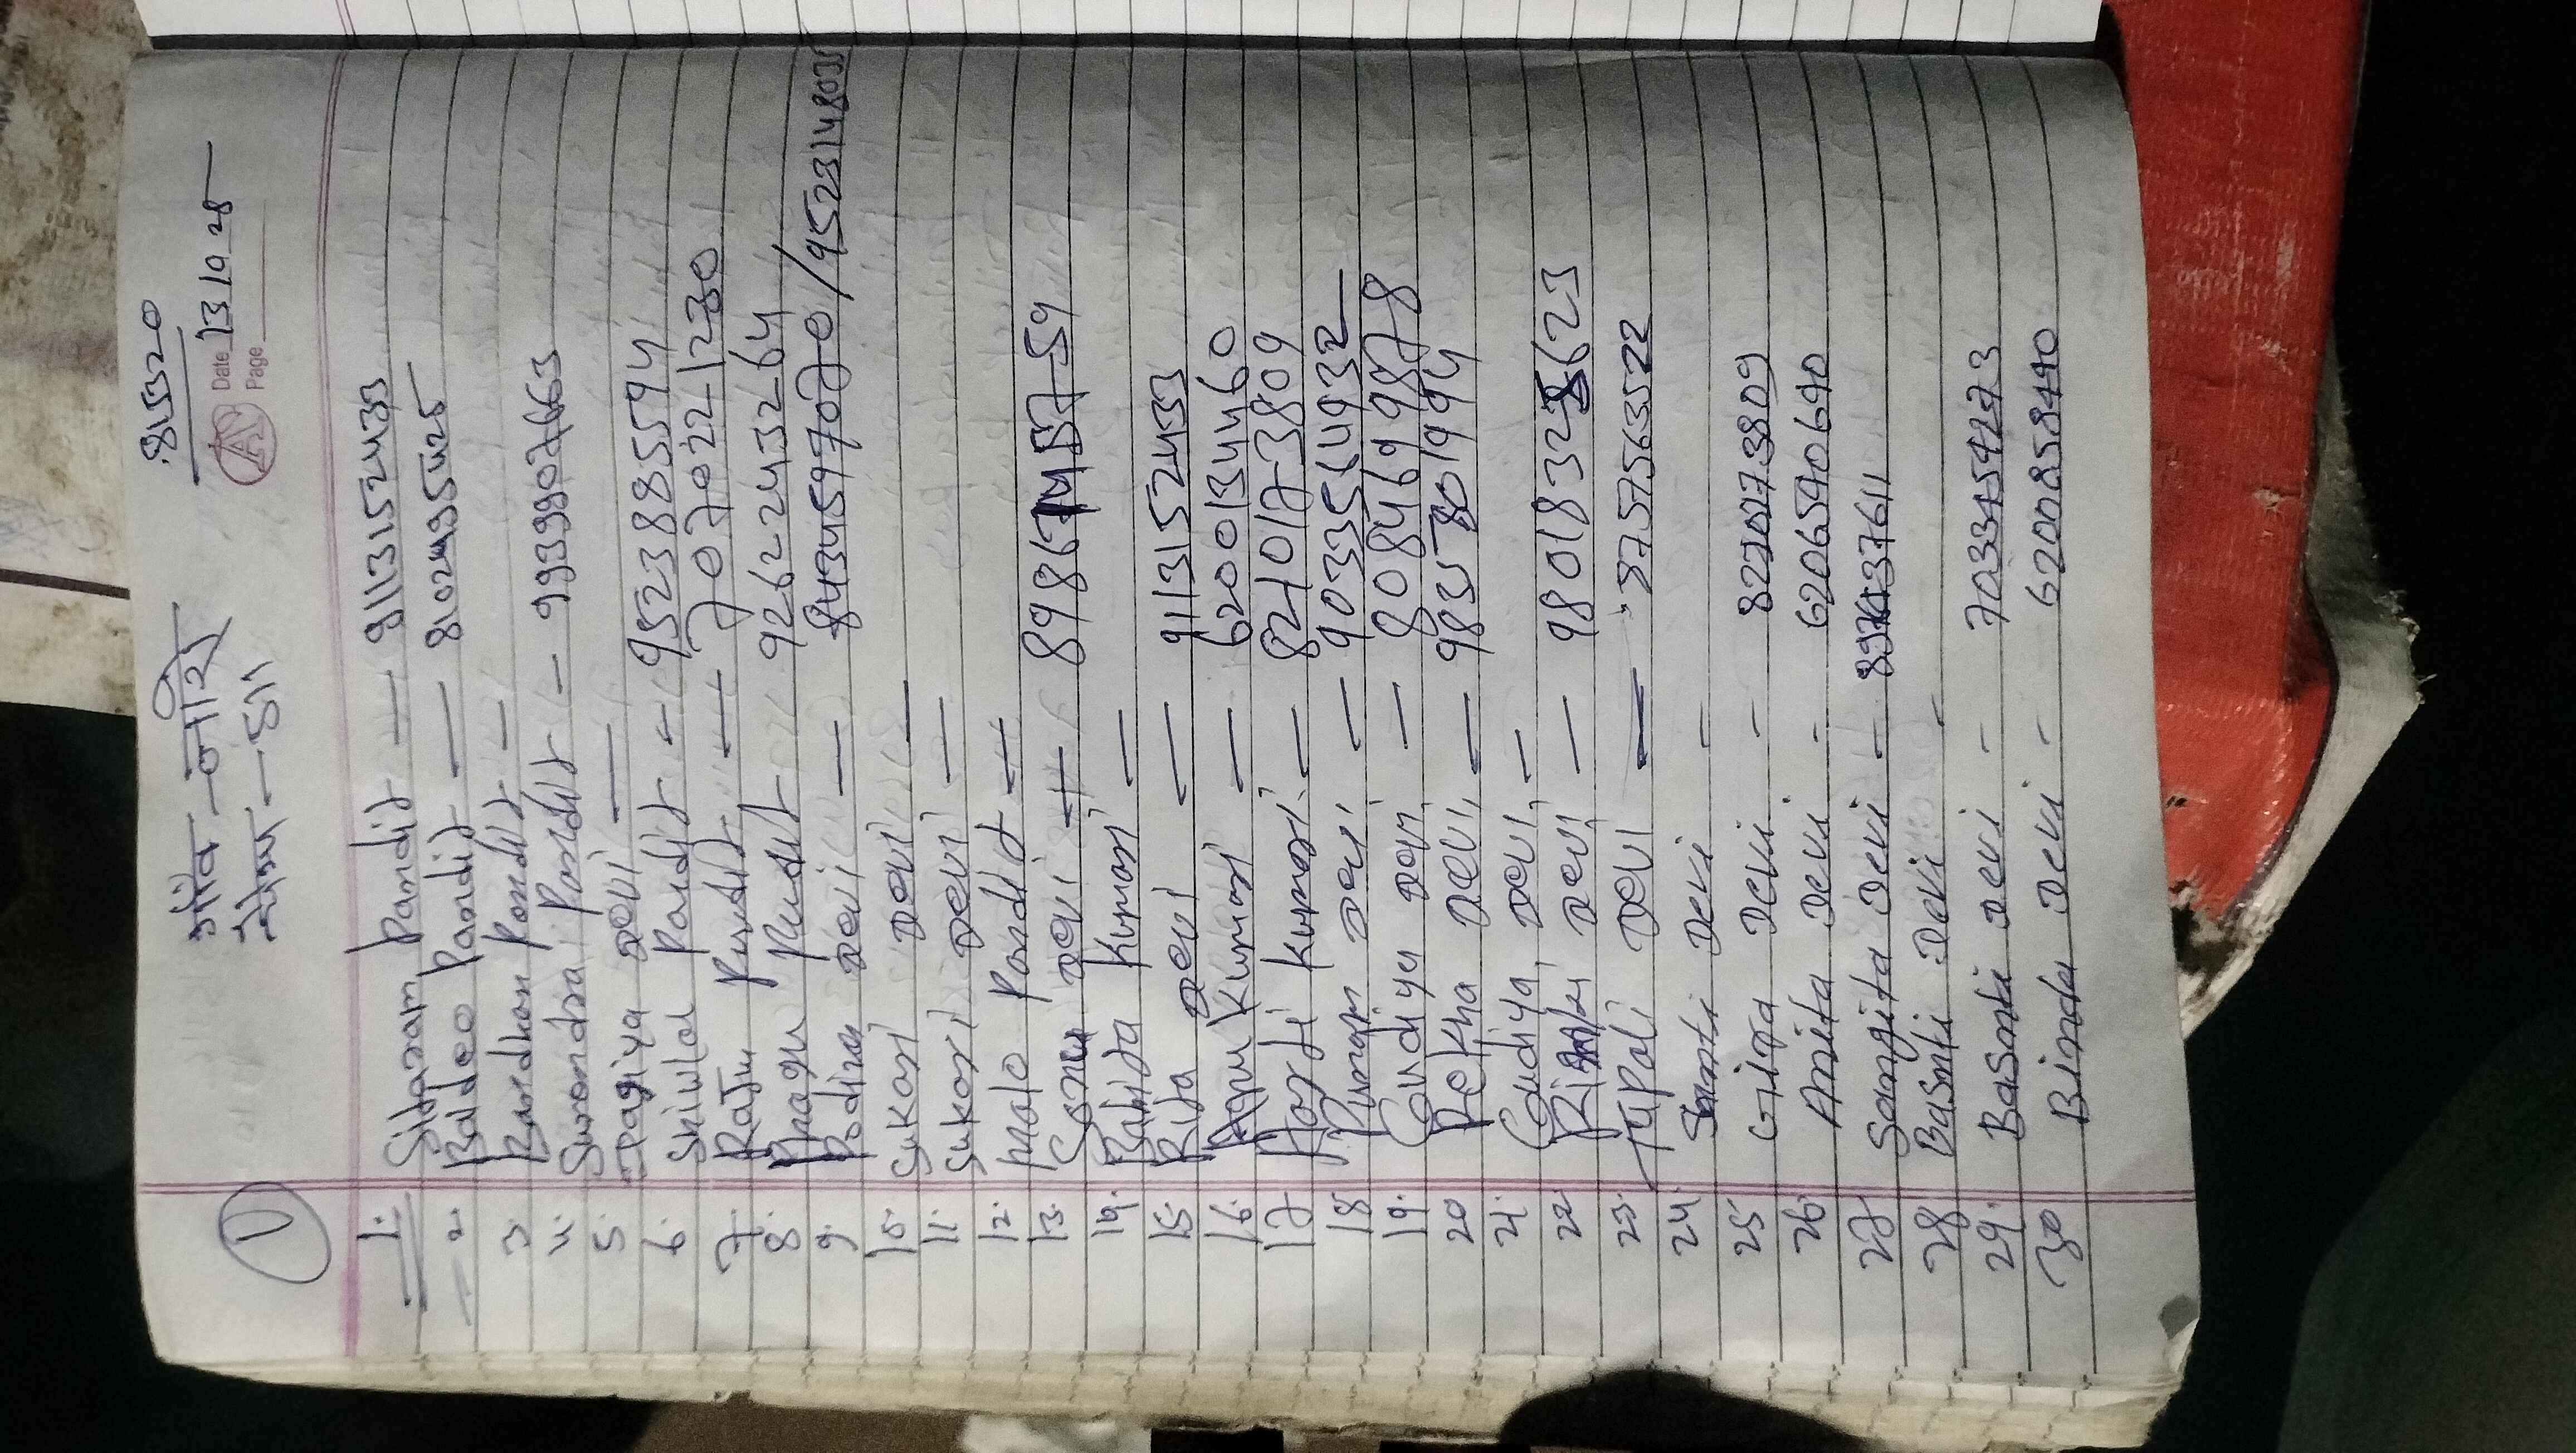 815320
Date 13/9/25
Page
1
गाँव - नावाडीह
टोला - डाब
1. Sitaram Pandit - 9113152433
2. Baldeo Pandit - 8102495425
3. Pandit -
4. Surendra Pandit - 9939907663
5. Devi -
6. Shivlal Pandit - 9523885594
7. Raju Pandit - 7070221230
8. Bhagru Pandit 9262243264
9. Devi - 8434597070 / 9523148035
10. Sukari Devi -
11. Sukari Devi -
12. Pandit -
13. Devi - 89867
14. Kumari -
15. Rita Devi - 9113152433
16. Kumari - 6200134460
17. Kumari - 8210173809
18. Punam Devi - 9033554932
19. Gaudiya Devi - 8084699878
20. Rekha Devi - 9835801994
21. Gaudiya Devi -
22. Rinki Devi - 9801832 623
23. Rupali Devi - 8757563522
24. Shanti Devi -
25. Gita Devi - 8210173809
26. Anita Devi - 6206590690
27. Sangita Devi - 37611
28. Basnti Devi -
29. Basnti Devi - 7033454273
30. Binda Devi - 6200858440